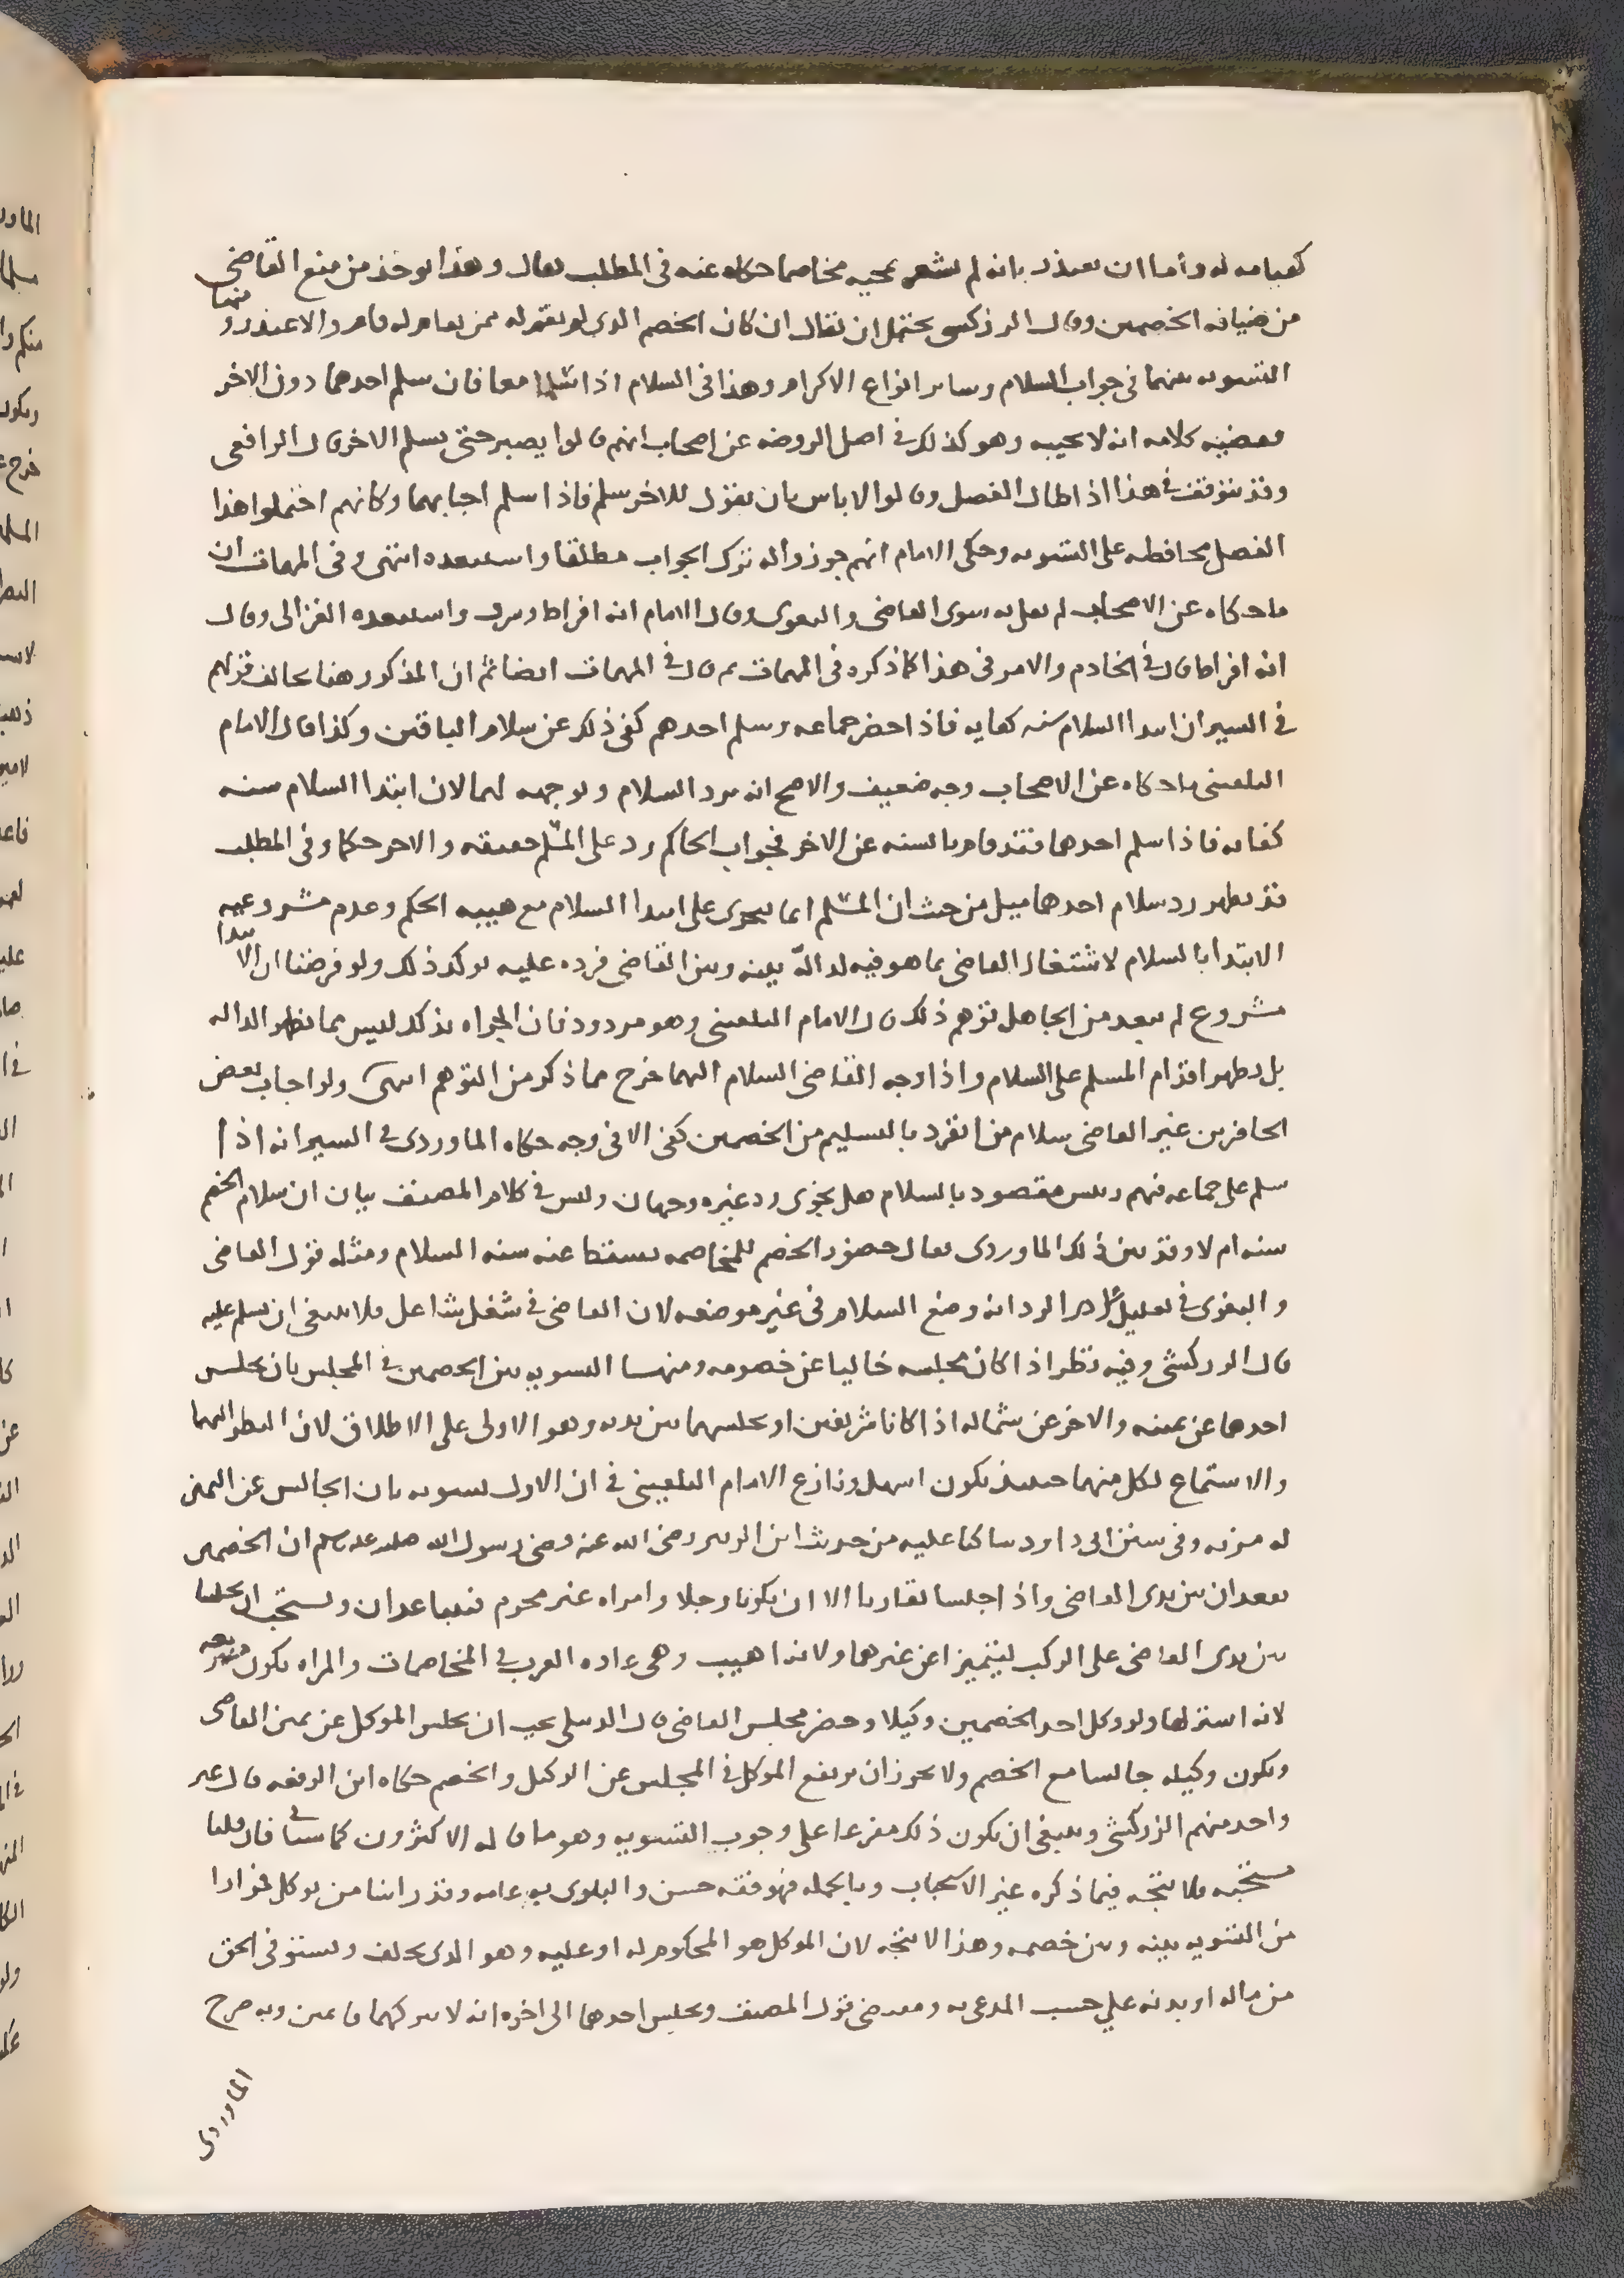 كقيامه له واما ان يعتذر بانه لم يشعر بمجيه مخاصما حكاه عنه في المطلب فقال وهذا يوخذ من منع القاضي
من ضيافه الخصمين وقال الزركشي يحتمل ان يقال ان كان الخصم الذي لم يقم له ممن يقام له قام والا اعتذر ومنها
التسويه بينهما في جواب السلام وساير انواع الاكرام وهذا في السلام اذا سلما معا فان سلم احدهما دون الاخر
فقضيه كلامه انه لا يجيبه وهو كذلك في اصل الروضه عن اصحاب انهم قالوا يصبر حتى يسلم الاخر قال الرافعي
وقد يتوقف في هذا اذا طال الفصل وقالوا لا باس بان يقول للاخر سلم فاذا سلم اجابهما وكانهم احتملوا هذا
الفصل محافظه على التسويه وحكى الامام انهم جوزوا له ترك الجواب مطلقا واستبعده انتهى وفي المهمات ان
ما حكاه عن الاصحاب لم يقل به سوى القاضي والبغوي وقال الامام انه افراط وسرف واستبعده الغزالي وقال
انه افراط قال في الخادم والامر في هذا كما ذكره في المهمات ثم قال في المهمات ايضا ثم ان المذكور هنا يخالف قولهم
في السير ان ابتدا السلام سنه كفايه فاذا حضر جماعه وسلم احدهم كفى ذلك عن سلام الباقين وكذا قال الامام
البلقيني ما حكاه عن الاصحاب وجه ضعيف والاصح انه يرد السلام ويوجهه لهما لان ابتدا السلام سنه
كفايه فاذا سلم احدهما فقد قام بالسنه عن الاخر فجواب الحاكم رد على المسلم حقيقه والاخر حكما وفي المطلب
قد يظهر رد سلام احدهما ميل من حيث ان المسلم انما يجري على ابتدا السلام مع هيبه الحكم وعدم مشروعيه
الابتدا بالسلام لاشتغال القاضي بما هو فيه لداله بينه وبين القاضي فرده عليه يوكد ذلك ولو فرضنا ان الابتدا
مشروع لم يبعد من الجاهل توهم ذلك قال الامام البلقيني وهو مردود فان الجراه بذلك ليس مما يظهر الداله
بل يظهر اقدام المسلم على السلام واذا وجه القاضي السلام اليهما خرج مما ذكر من التوهم انتهى ولو اجاب بعض
الحاضرين غير القاضي سلام من انفرد بالتسليم من الخصمين كفى الا في وجه حكاه الماوردي في السير انه اذا
سلم على جماعه فيهم رييس مقصود بالسلام هل يجزي رد غيره وجهان وليس في كلام المصنف بيان ان سلام الخصم
سنه ام لا وقد بين ذلك الماوردي فقال حضور الخصم للمخاصمه يسقط عنه سنه السلام ومثله قول القاضي
والبغوي في تعليل الرد انه وضع السلام في غير موضعه لان القاضي في شغل شاغل فلا ينبغي ان يسلم عليه
قال الزركشي وفيه نظر اذا كان مجلسه خاليا عن خصومه ومنها التسويه بين الخصمين في المجلس بان يجلس
احدهما عن يمينه والاخر عن شماله اذا كانا شريفين او يجلسهما بين يديه وهو الاولى على الاطلاق لان النظر اليهما
والاستماع لكل منهما حينيذ يكون اسهل ونازع الامام البلقيني في ان الاول تسويه بان الجالس عن اليمين
له مزيه وفي سنن ابي داود ساكتا عليه من حديث ابن الزبير رضي الله عنه قضى رسول الله صلى الله عليه وسلم ان الخصمين
يقعدان بين يدي القاضي واذا جلسا تقاربا الا ان يكونا رجلا وامراه غير محرم فيتباعدان ويستحب ان يجلسا
بين يدي القاضي على الركب ليتميزا عن غيرهما ولانه اهيب وهي عاده العرب في المخاصمات والمراه تكون متربعه
لانه استر لها ولو وكل احد الخصمين وكيلا وحضر مجلس القاضي قال الدبيلي يجب ان يجلس الموكل عن يمين القاضي
ويكون وكيله جالسا مع الخصم ولا يجوز ان يرتفع الموكل في المجلس عن الوكيل والخصم حكاه ابن الرفعه قال غير
واحد منهم الزركشي وينبغي ان يكون ذلك مفرعا على وجوب التسويه وهو ما قاله الاكثرون كما سياتي فان قلنا
مستحبه فلا يتجه فيما ذكره غير الاستحباب وبالجمله فهو فقه حسن والبلوى به عامه وقد راينا من يوكل فرارا
من التسويه بينه وبين خصمه وهذا لا يتجه لان الموكل هو المحكوم له او عليه وهو الذي يحلف ويستوفى الحق
من ماله او بدنه على حسب المدعى به ومقتضى قول المصنف ويجلس احدهما الى اخره انه لا يتركهما قايمين وبه صرح
الماوردي